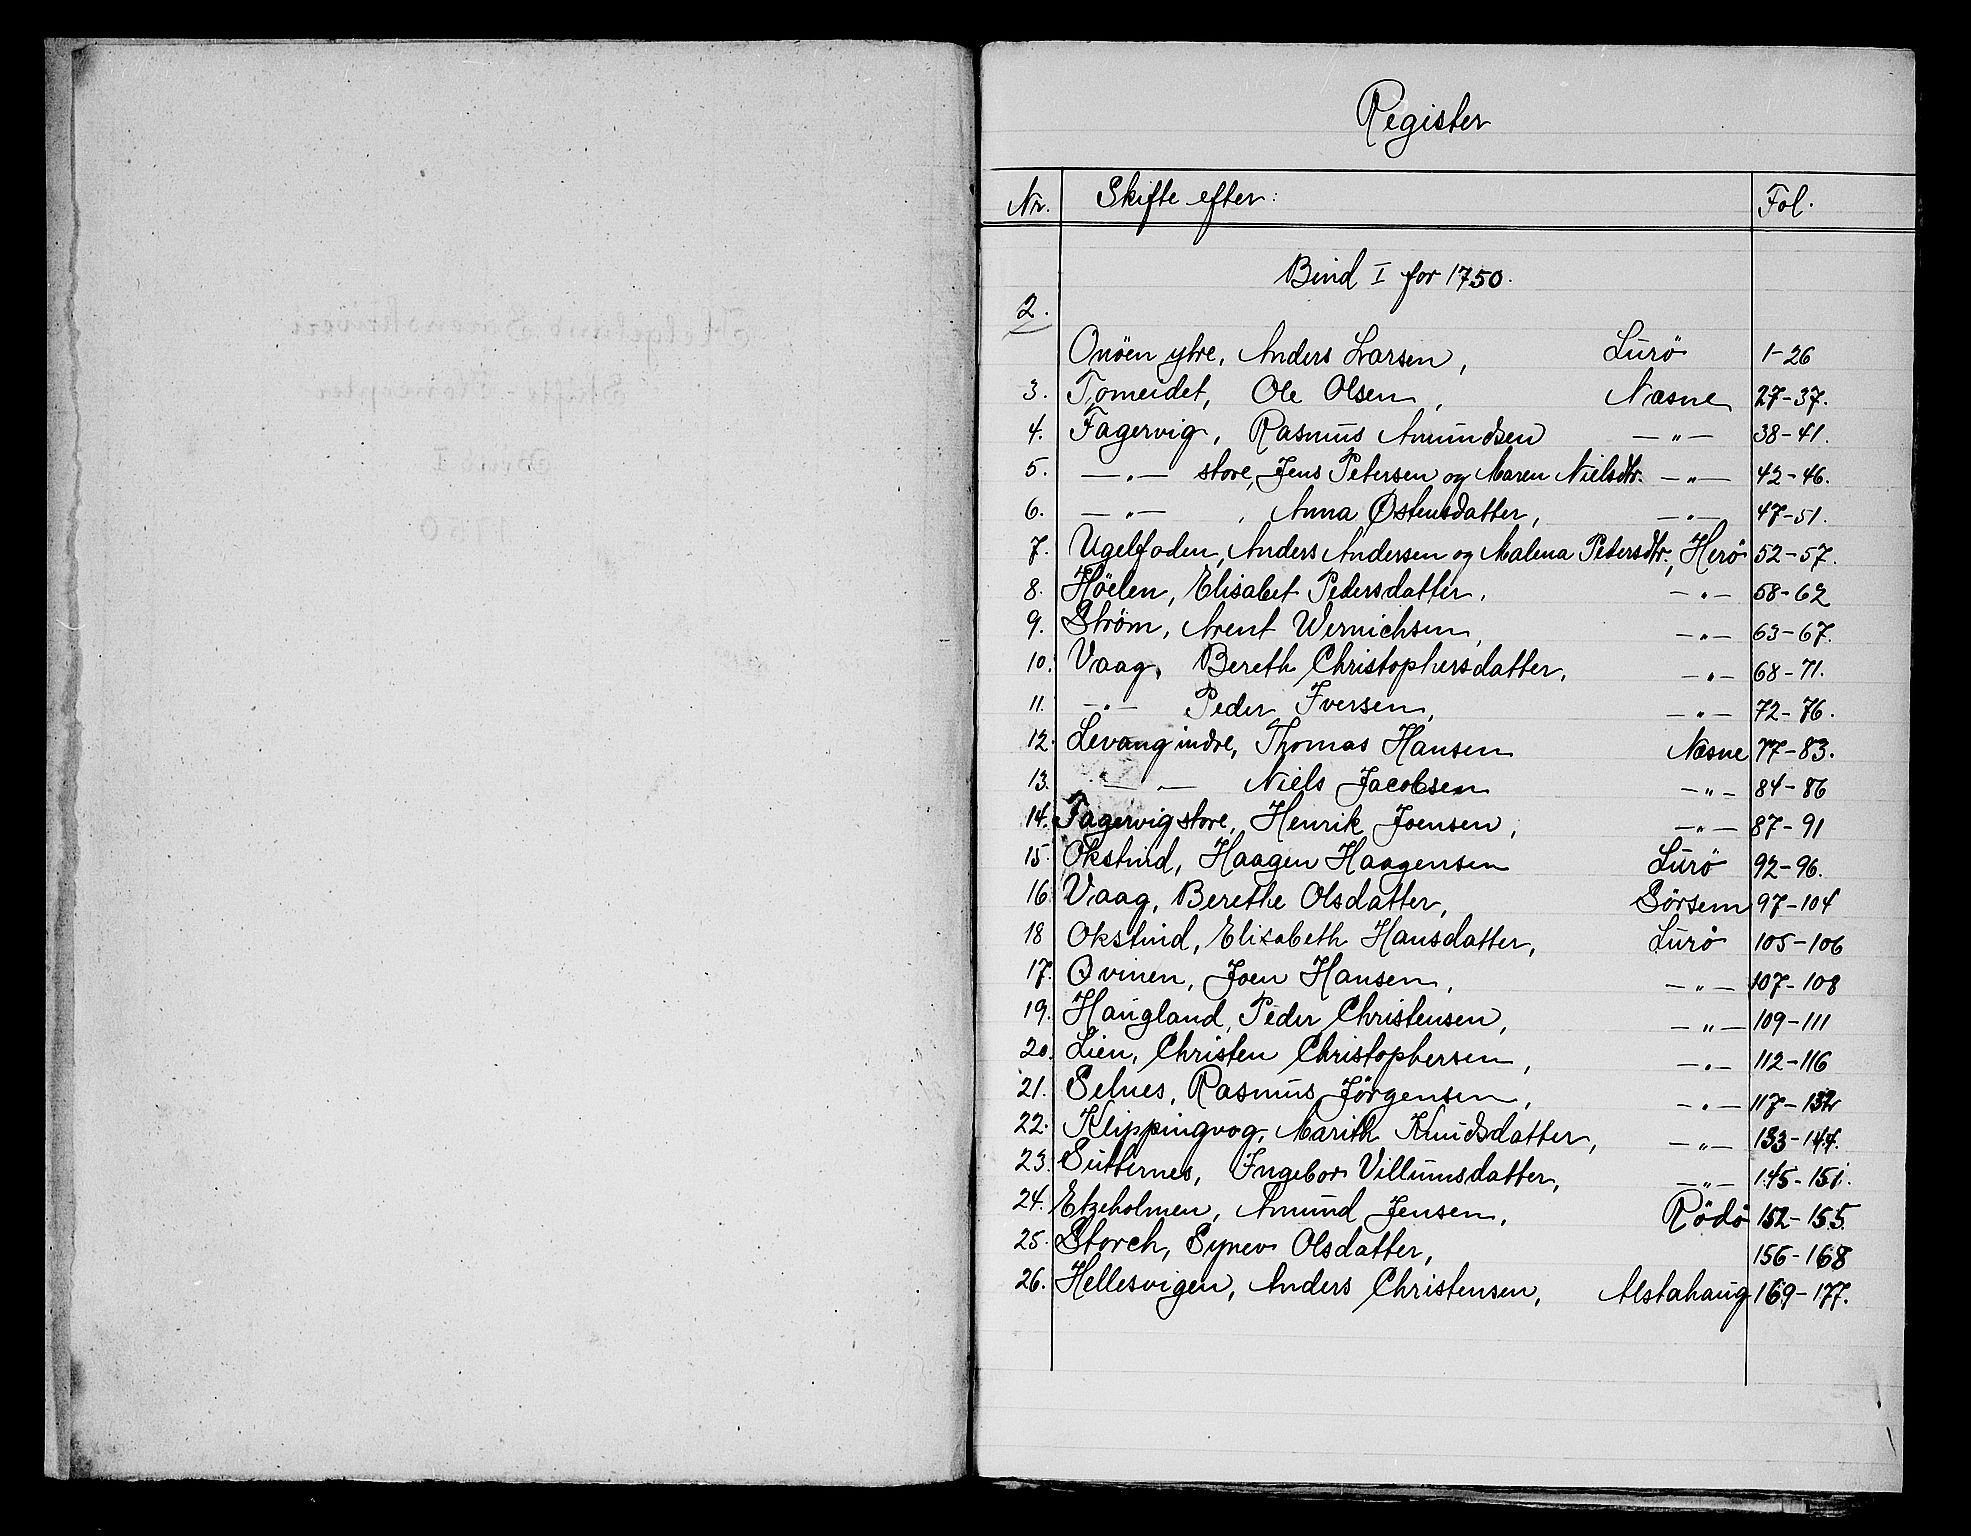 Register
Nr. Skifte efter: Fol.
Bind I for 1750.
2.
Onöen ytre, Anders Larsen, Lurö 1-26
3. Tomeidet, Ole Olsen, Næsne 27-37.
4. Fagervig, Rasmus Amundsen —"— 38-41.
5. —"— store, Jens Petersen og Maren Nielsdtr. —"— 42-46.
6. —"— , Anna Østensdatter, —"— 47-51.
7. Ugelfoden, Anders Andersen og Malena Petersdtr., Herö 52-57.
8. Höelen, Elisabet Pedersdatter, —"— 58-62
9. Ström, Arent Wernichsen, —"— 63-67.
10. Vaag, Bereth Christophersdatter, —"— 68-71.
11. —"— Peder Iversen, —"— 72-76.
12. Levang indre, Thomas Hansen Næsne 77-83.
13. —"— Niels Jacobsen —"— 84-86
14. Fagervig store, Henrik Joensen, —"— 87-91
15. Okstind, Haagen Haagensen Lurö 92-96.
16. Vaag, Berethe Olsdatter, Sörsem 97-104
18 Okstind, Elisabeth Hansdatter, Lurö 105-106
17. Qvinen, Joen Hansen, —"— 107-108
19. Haugland, Peder Christensen, —"— 109-111
20. Lien, Christen Christophersen, —"— 112-116
21. Selnes, Rasmus Jörgensen, —"— 117-132
22. Klippingvog, Marith Knudsdatter, —"— 133-144.
23. Sutternes, Ingebor Villumsdatter, —"— 145-151.
24. Etzeholmen, Amund Jensen, Rödö 152-155.
25. Storch, Synev Olsdatter, 156-168
26. Hellesvigen, Anders Christensen, Alstahaug 169-177.